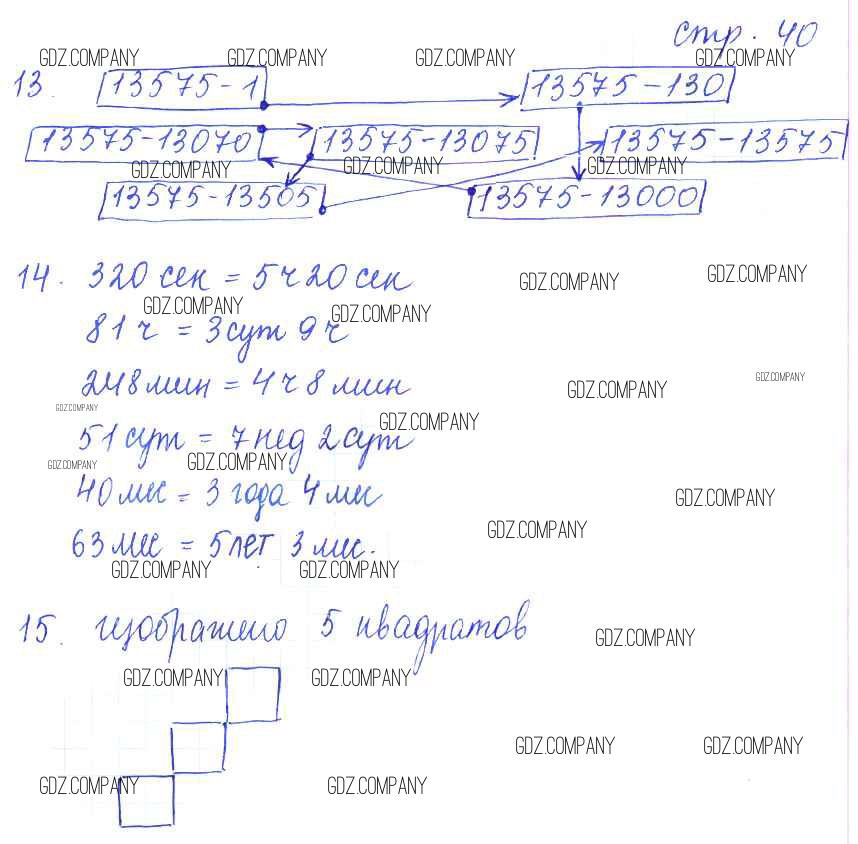 стр. 40
GDZ.COMPANY GDZ.COMPANY GDZ.COMPANY GDZ.COMPANY
13. 13575-1 13575-130
13575-13070 13575-13075 13575-13575
GDZ.COMPANY GDZ.COMPANY GDZ.COMPANY
13575-13505 13575-13000
14. 320 сек = 5ч 20 сек
GDZ.COMPANY GDZ.COMPANY
GDZ.COMPANY GDZ.COMPANY
81 ч = 3 сут 9 ч
248 мин = 4 ч 8 мин
GDZ.COMPANY GDZ.COMPANY
GDZ.COMPANY GDZ.COMPANY
51 сут = 7 нед 2 сут
GDZ.COMPANY GDZ.COMPANY
40 мес = 3 года 4 мес
GDZ.COMPANY
GDZ.COMPANY
63 мес = 5 лет 3 мес.
GDZ.COMPANY GDZ.COMPANY
15. изображено 5 квадратов
GDZ.COMPANY
GDZ.COMPANY GDZ.COMPANY
GDZ.COMPANY GDZ.COMPANY
GDZ.COMPANY GDZ.COMPANY